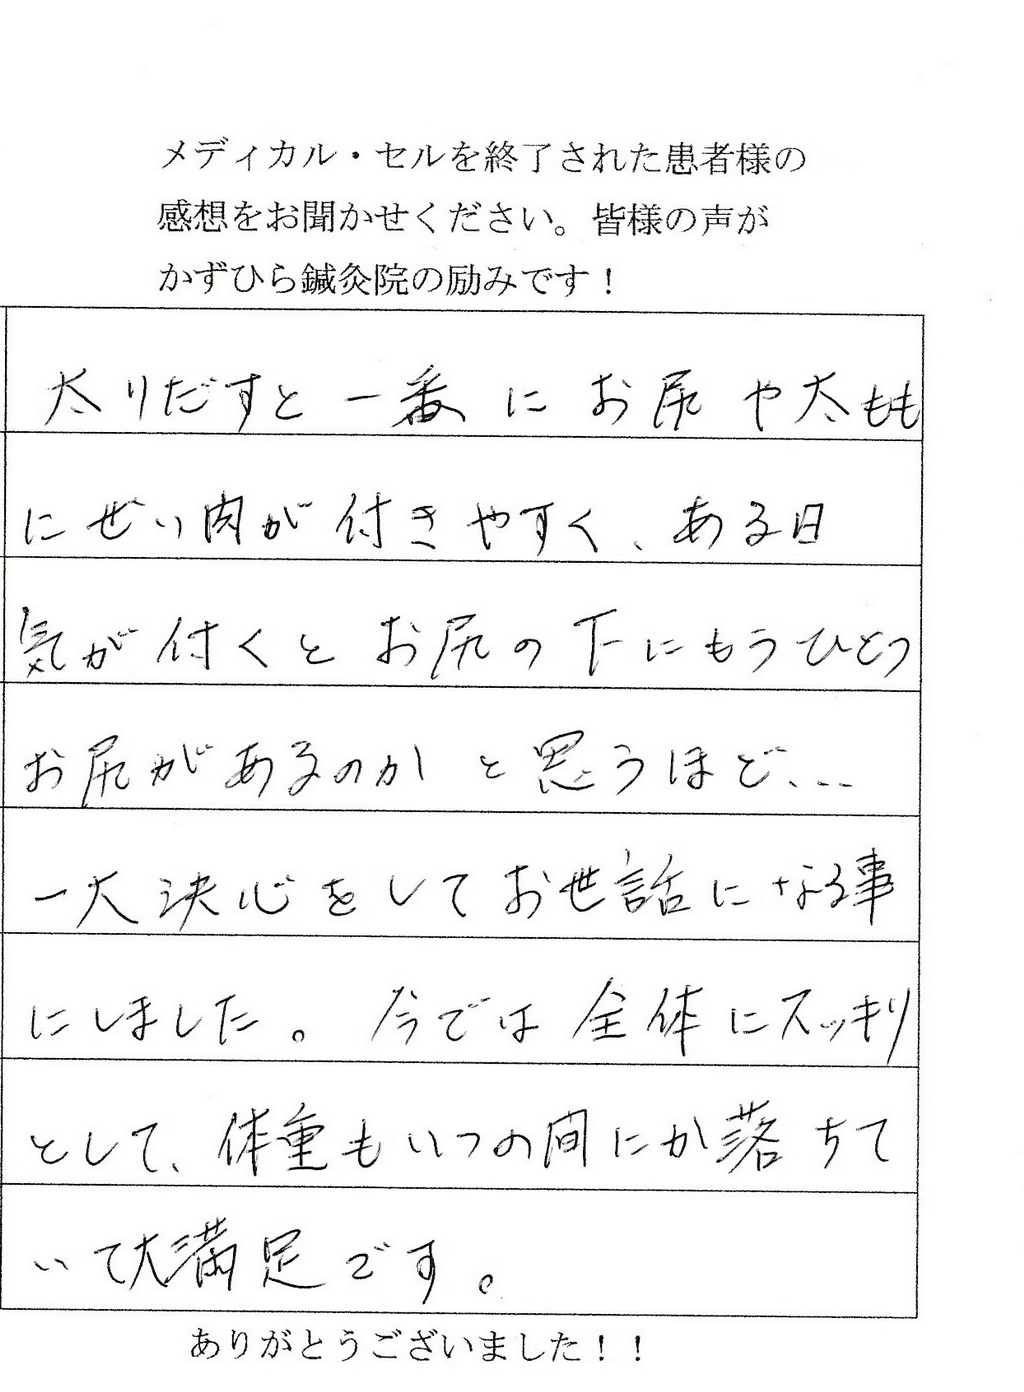 メディカル・セルを終了された患者様の
感想をお聞かせください。皆様の声が
かずひら鍼灸院の励みです！
太りだすと一番にお尻や太もも
にぜい肉が付きやすく、ある日
気が付くとお尻の下にもうひとつ
お尻があるのかと思うほど、…
一大決心をしてお世話になる事
にしました。今では全体にスッキリ
として、体重もいつの間にか落ちて
いて大満足です。
ありがとうございました！！